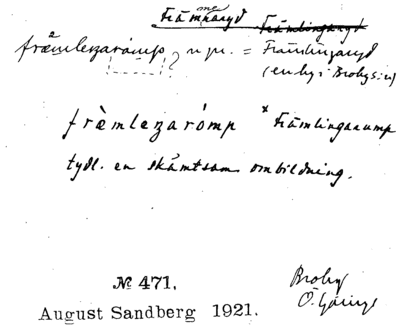 Främmaryd Främlingaryd
främlezarámp n pr. = Främlingaryd
(en by i Broby s:n)
frèmlezarómp * Främlingarump
tydl. en skämtsam ombildning.
№ 471.
August Sandberg 1921.
Broby
Ö. Göinge